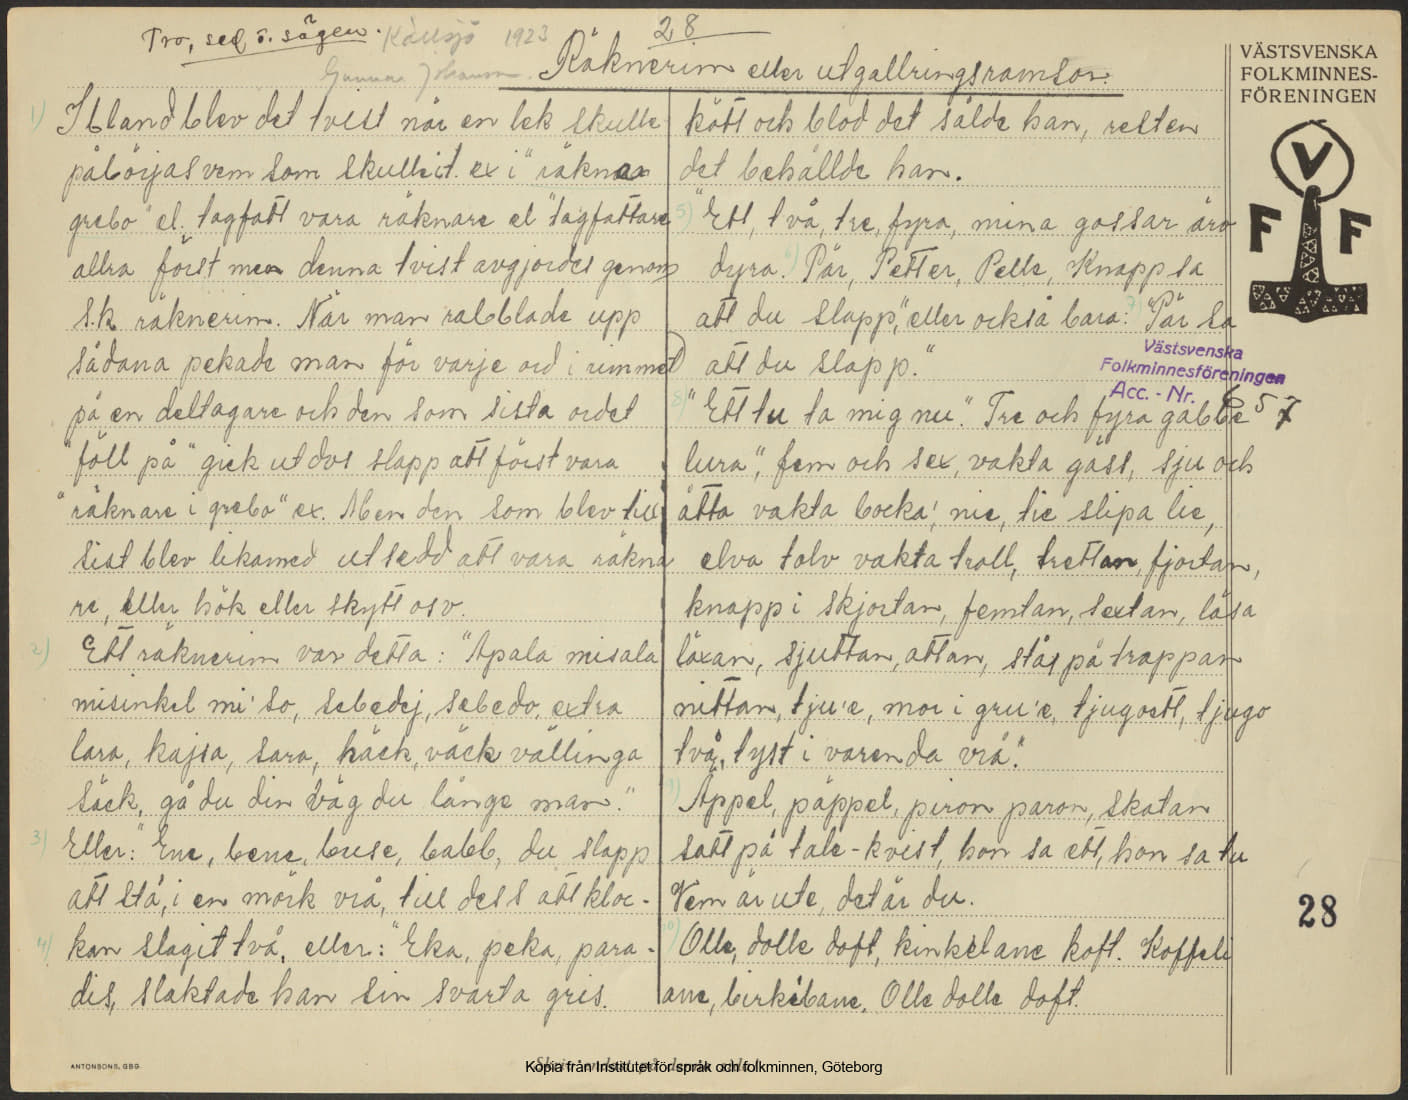 Tro, sed o. sägen.
Källsjö 1923
28
Räknerim eller utgallringsramsor.
1) Ibland blev det tvist när en lek skulle
påbörjas vem som skulle t. ex i "räknare
grebo" el. tagfatt vara räknare el "tagfattare
allra först men denna tvist avgjordes genom
s.k räknerim. När man rabblade upp
sådana pekade man för varje ord i rimmet
på en deltagare och den som sista ordet
"föll på" gick ut dvs slapp att först vara
"räknare i grebo" ex. Men den som blev till
sist blev likamed utsedd att vara räkna
re, eller hök eller skytt osv.
2) Ett räknerim var detta: "Apala misala
misinkel mi' so, sebedej, sebedo, extra
lara, kajsa, sara, häck, väck vällinga
säck, gå du din väg du långe man."
3) Eller: "Ene, bene, buse, babb, du slapp
att stå, i en mörk vrå, till dess att kloc-
kan slagit två, eller:
4) "Eka, peka, para-
dis, slaktade han sin svarta gris.
kött och blod det sålde han, resten
det behällde han.
5) "Ett, två, tre, fyra, mina gossar äro
dyra. 6) Pär, Petter, Pelle, Knapp sa
att du slapp", eller också bara: 7) "Pär sa
att du slapp."
8) "Ett tu ta mig nu". Tre och fyra gabbe
lura", fem och sex, vakta gäss, sju och
åtta vakta bocka', nie, tie slipa lie,
elva tolv vakta troll, trettan, fjortan,
knapp i skjortan, femtan, sextan, läsa
läxan, sjuttan, attan, stå på trappan
nittan, tju'e, mor i gru'e, tjugoett, tjugo
två, tyst i varenda vrå."
9) Äppel, päppel, piron paron, skatan
satt på tale-kvist, hon sa ett, hon sa tu
Vem är ute, det är du.
10) Olle, dolle doft, kinkelane koft. Koffeli
ane, birkibane, Olle dolle doft.
VÄSTSVENSKA
FOLKMINNES-
FÖRENINGEN
V
F F
Västsvenska
Folkminnesföreningen
Acc. - Nr.
28
ANTONSONS, GBG.
Kopia från Institutet för språk och folkminnen, Göteborg